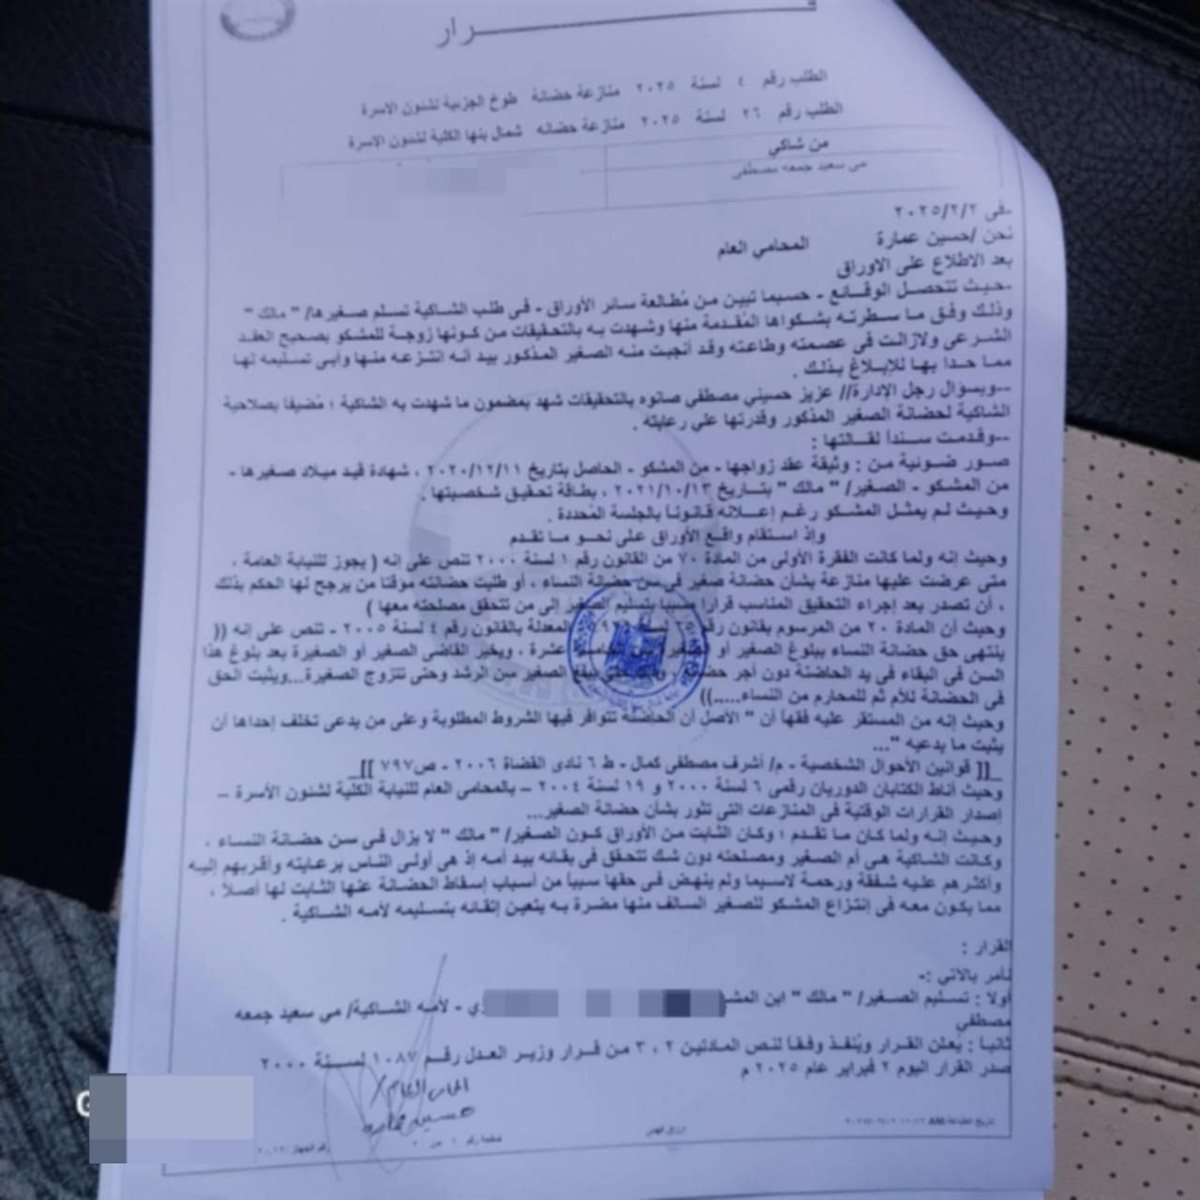 قـــــرار
الطلب رقم ٤ لسنة ٢٠٢٥ منازعة حضانة طوخ الجزئية لشئون الاسرة
الطلب رقم ٢٦ لسنة ٢٠٢٥ منازعة حضانه شمال بنها الكلية لشئون الاسرة
من شاكي
مى سعيد جمعه مصطفى
-فى ٢٠٢٥/٢/٢
نحن /حسين عمارة المحامي العام
بعد الاطلاع على الاوراق
-حيث تتحصل الوقائع - حسبما تبين من مُطالعة سائر الأوراق - فى طلب الشاكية تسلم صغيرها/ " مالك "
وذلك وفق ما سطرته بشكواها المُقدمة منها وشهدت به بالتحقيقات من كونها زوجة للمشكو بصحيح العقد
الشرعى ولازالت فى عصمته وطاعته وقد أنجبت منه الصغير المذكور بيد أنه انتزعه منها وأبى تسليمه لها
مما حدا بها للإبلاغ بذلك .
--وبسؤال رجل الإدارة// عزيز حسيني مصطفى صانوه بالتحقيقات شهد بمضمون ما شهدت به الشاكية ؛ مُضيفا بصلاحية
الشاكية لحضانة الصغير المذكور وقدرتها علي رعايته .
--وقدمت سنداً لقالتها :
صور ضوئية من : وثيقة عقد زواجها - من المشكو - الحاصل بتاريخ ٢٠٢٠/١٢/١١ ، شهادة قيد ميلاد صغيرها -
من المشكو - الصغير/ " مالك " بتاريخ ٢٠٢١/١٠/١٣ ، بطاقة تحقيق شخصيتها .
وحيث لم يمثل المشكو رغم إعلانه قانوناً بالجلسة المُحددة .
وإذ استقام واقع الأوراق على نحو ما تقدم
وحيث إنه ولما كانت الفقرة الأولى من المادة ٧٠ من القانون رقم ١ لسنة ٢٠٠٠ تنص على إنه ( يجوز للنيابة العامة ،
متى عرضت عليها منازعة بشأن حضانة صغير فى سن حضانة النساء ، أو طلبت حضانته موقتا من يرجح لها الحكم بذلك
، أن تصدر بعد إجراء التحقيق المناسب قرارا مسببا بتسليم الصغير إلى من تتحقق مصلحته معها )
وحيث أن المادة ٢٠ من المرسوم بقانون رقم ٢٥ لسنة المعدلة بالقانون رقم ٤ لسنة ٢٠٠٥ - تنص على إنه ((
ينتهى حق حضانة النساء ببلوغ الصغير أو الصغيرة سن الخامسة عشرة ، ويخير القاضى الصغير أو الصغيرة بعد بلوغ هذا
السن فى البقاء فى يد الحاضنة دون أجر حضانة ، وذلك حتى يبلغ الصغير سن الرشد وحتى تتزوج الصغيرة...ويثبت الحق
فى الحضانة للأم ثم للمحارم من النساء.....))
وحيث إنه من المستقر عليه فقهاً أن " الأصل أن الحاضنة تتوافر فيها الشروط المطلوبة وعلى من يدعى تخلف إحداها أن
يثبت ما يدعيه "...
_[[ قوانين الأحوال الشخصية - م/ أشرف مصطفى كمال - ط ٦ نادى القضاة ٢٠٠٦ - ص٧٩٧ ]]_
وحيث أناط الكتابان الدوريان رقمى ٦ لسنة ٢٠٠٠ و ١٩ لسنة ٢٠٠٤ – بالمحامى العام للنيابة الكلية لشئون الأسرة –
إصدار القرارات الوقتية فى المنازعات التى تثور بشأن حضانة الصغير...
وحيث إنه ولما كان ما تقدم ؛ وكان الثابت من الأوراق كون الصغير/ " مالك " لا يزال فى سن حضانة النساء ،
وكانت الشاكية هى أم الصغير ومصلحته دون شك تتحقق فى بقائه بيد أمه إذ هى أولى الناس برعايته وأقربهم إليه
وأكثرهم عليه شفقة ورحمة لاسيما ولم ينهض فى حقها سبباً من أسباب إسقاط الحضانة عنها الثابت لها أصلاً ،
مما يكون معه فى إنتزاع المشكو للصغير السالف منها مضرة به يتعين إتقائه بتسليمه لأمه الشاكية .
القرار :
نأمر بالاتي :-
أولا : تسليم الصغير/ " مالك " ابن - لأمه الشاكية/ مي سعيد جمعه
مصطفي
ثانيا : يُعلن القرار ويُنفذ وفقا لنص المادتين ٢ ، ٣ من قرار وزير العدل رقم ١٠٨٧ لسنة ٢٠٠٠
صدر القرار اليوم ٢ فبراير عام ٢٠٢٥ م
المحامى العام/
حسين عمارة
صفحة رقم ١ من ٢